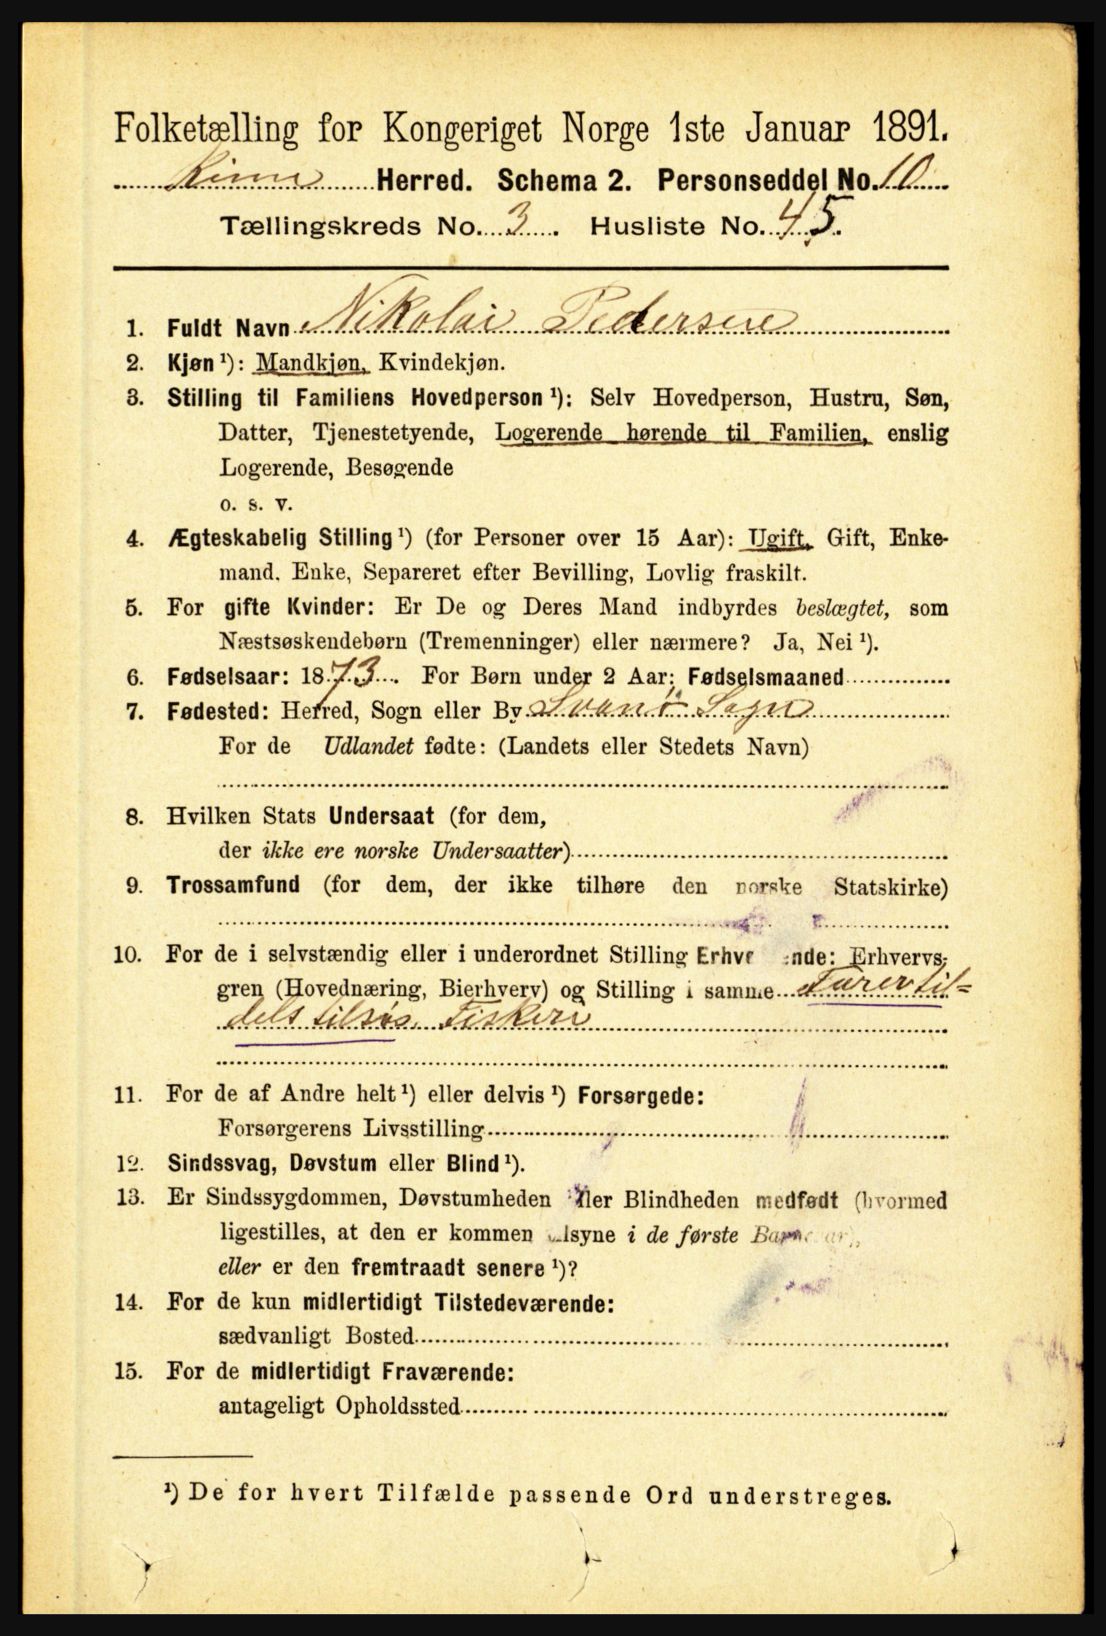 Folketælling for Kongeriget Norge 1ste Januar 1891.
Kinn Herred. Schema 2. Personseddel No. 10
Tællingskreds No. 3. Husliste No. 45.
1. Fuldt Navn Nikolai Pedersen
2. Kjøn ¹): Mandkjøn, Kvindekjøn.
3. Stilling til Familiens Hovedperson ¹): Selv Hovedperson, Hustru, Søn,
Datter, Tjenestetyende, Logerende hørende til Familien, enslig
Logerende, Besøgende
o. s. v.
4. Ægteskabelig Stilling ¹) (for Personer over 15 Aar): Ugift, Gift, Enke-
mand, Enke, Separeret efter Bevilling, Lovlig fraskilt.
5. For gifte Kvinder: Er De og Deres Mand indbyrdes beslægtet, som
Næstsøskendebørn (Tremenninger) eller nærmere? Ja, Nei ¹).
6. Fødselsaar: 1873. For Børn under 2 Aar: Fødselsmaaned
7. Fødested: Herred, Sogn eller By Svanø Sogn
For de Udlandet fødte: (Landets eller Stedets Navn)
8. Hvilken Stats Undersaat (for dem,
der ikke ere norske Undersaatter)
9. Trossamfund (for dem, der ikke tilhøre den norske Statskirke)
10. For de i selvstændig eller i underordnet Stilling Erhvervende: Erhvervs-
gren (Hovednæring, Bierhverv) og Stilling i samme Farer til=
dels tilsøs. Fiskeri
11. For de af Andre helt ¹) eller delvis ¹) Forsørgede:
Forsørgerens Livsstilling
12. Sindssvag, Døvstum eller Blind ¹).
13. Er Sindssygdommen, Døvstumheden eller Blindheden medfødt (hvormed
ligestilles, at den er kommen tilsyne i de første Barneaar),
eller er den fremtraadt senere ¹)?
14. For de kun midlertidigt Tilstedeværende:
sædvanligt Bosted
15. For de midlertidigt Fraværende:
antageligt Opholdssted
¹) De for hvert Tilfælde passende Ord understreges.